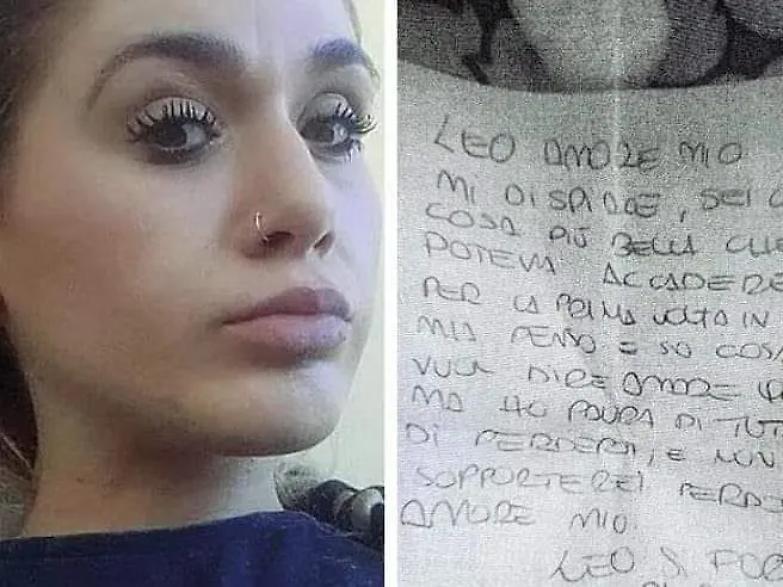 LEO AMORE MIO
MI DISPIACE, SEI
COSA PIÙ BELLA CHE
POTEVA ACCADERE
PER LA PRIMA VOLTA IN
MIA PENSO E SO COSA
VUOL DIRE AMORE
MA HO PAURA DI TUT
DI PERDERTI, E NON
SOPPORTEREI
AMORE MIO
LEO